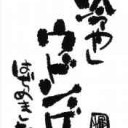 冷やし
ウドンゲ
はじめまし